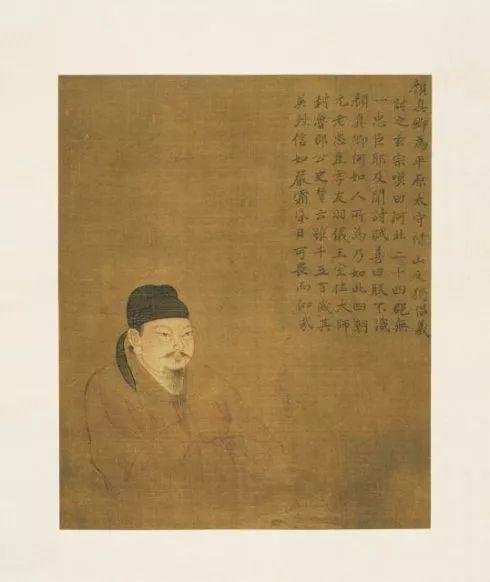 顏真卿為平原太守祿山反獨倡義
討之玄宗嘆曰河北二十四郡無
一忠臣耶及聞討賊喜曰朕不識
顏真卿何如人所為乃如此四朝
元老忠直孝友羽儀王室位太師
封魯郡公史贊云雖千五百歲其
英烈信如嚴霜烈日可畏而仰哉